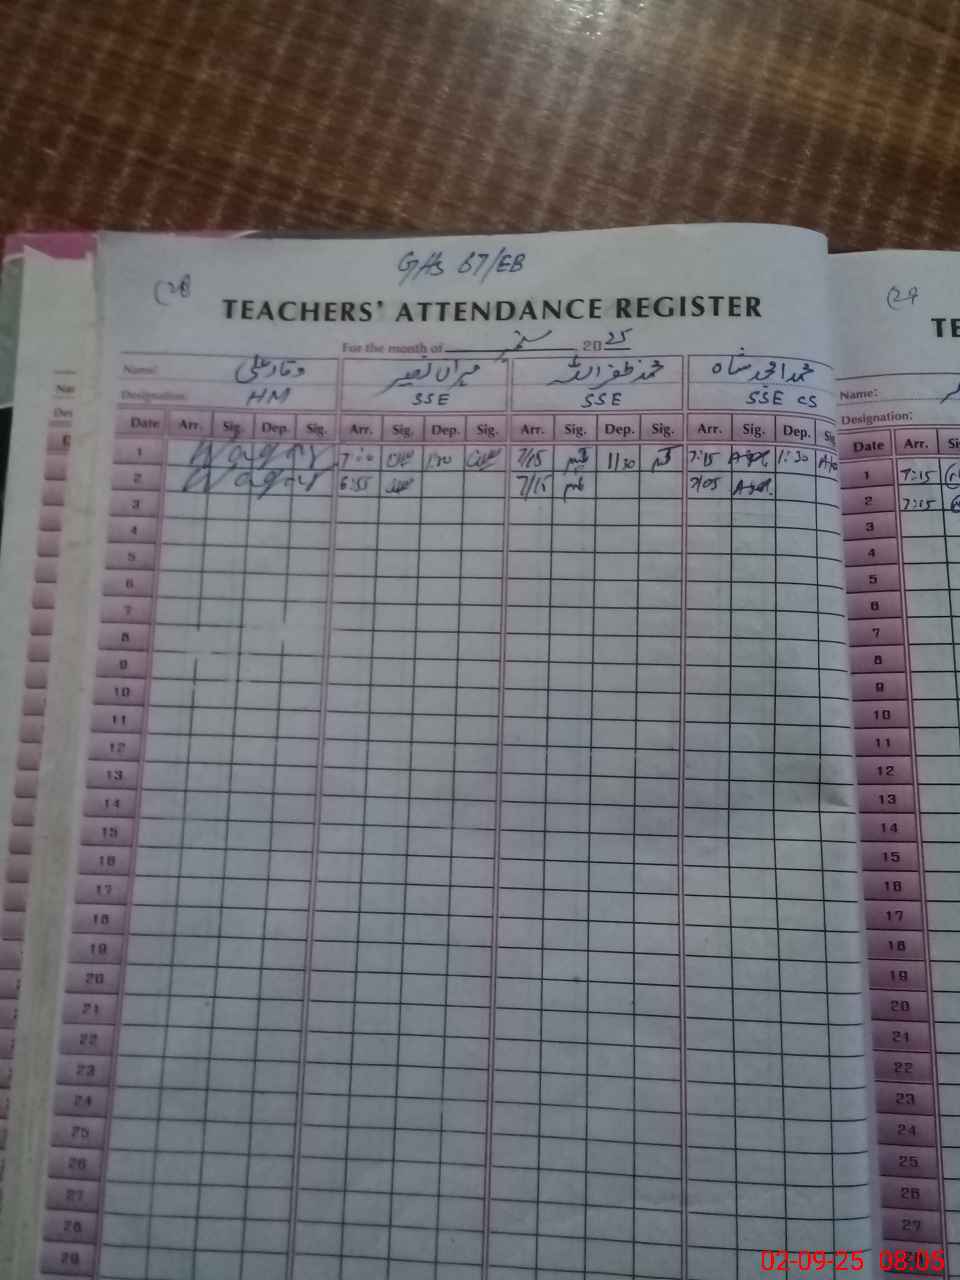 GHS 67/EB
(28
(29
TEACHERS' ATTENDANCE REGISTER
TE
For the month of ستمبر 2025
Name: وقار علی مہران نصیر محمد ظفر اللہ محمد امجد شاہ
Name:
Designation: HM SSE SSE SSE CS
Designation:
Date Arr. Sig. Dep. Sig. Arr. Sig. Dep. Sig. Arr. Sig. Dep. Sig. Arr. Sig. Dep. Sig
Date Arr. Si
1 Waqar 7:10 1:30 7/15 1/30 7:15 1:30
1 7:15
2 Waqar 6:55 7/15 7/05
2 7:15
3
3
4
4
5
5
6
6
7
7
8
8
9
9
10
10
11
11
12
12
13
13
14
14
15
15
16
16
17
17
18
18
19
19
20
20
21
21
22
22
23
23
24
24
25
25
26
26
27
27
28
29
02-09-25 08:05